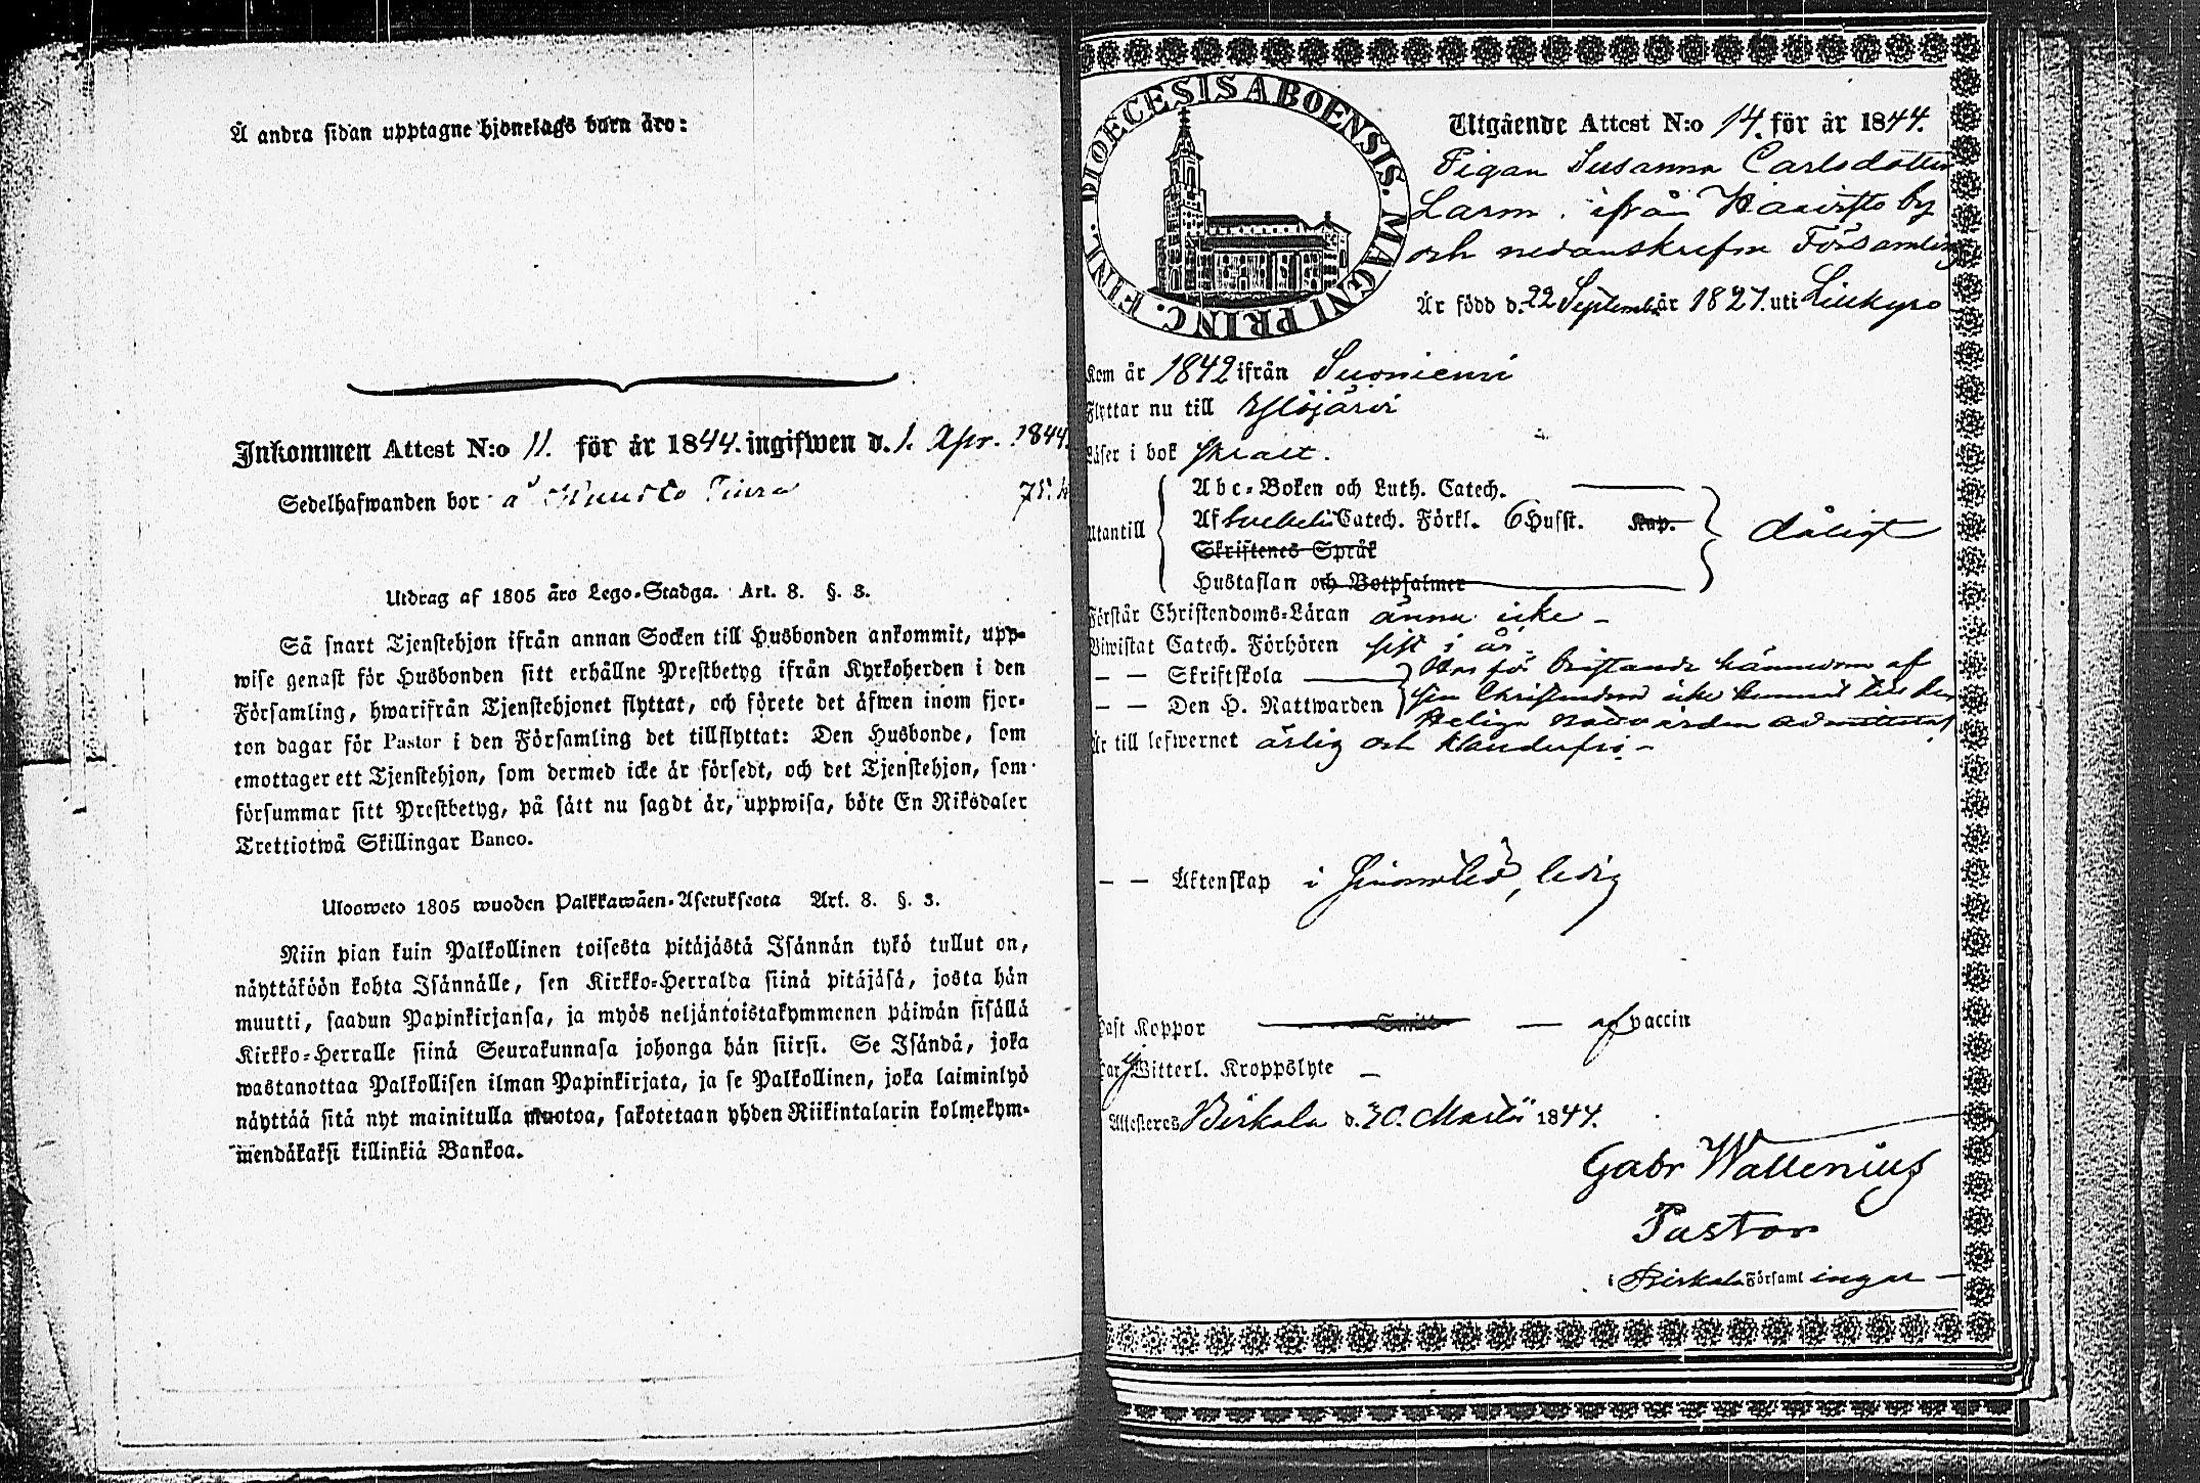 Å andra sidan upptagne hjonelags barn äro:
Inkommen Attest N:o 11. för år 1844. ingifwen d. 1. Apr. 1844
Sedelhafwanden bor å
Utdrag af 1805 års Lego-Stadga. Art. 8. §. 3.
Så snart Tjenstehjon ifrån annan Socken till Husbonden ankommit, upp-
wise genast för Husbonden sitt erhållne Prestbetyg ifrån Kyrkoherden i den
Församling, hwarifrån Tjenstehjonet flyttat, och förete det äfwen inom fjor-
ton dagar för Pastor i den Församling det tillflyttat: Den Husbonde, som
emottager ett Tjenstehjon, som dermed icke är försedt, och det Tjenstehjon, som
försummar sitt Prestbetyg, på sätt nu sagdt är, uppwisa, böte En Riksdaler
Trettiotwå Skillingar Banco.
Ulosweto 1805 wuoden Palkkawäen-Asetuksesta Art. 8. §. 3.
Niin pian kuin Palkollinen toisesta pitäjästä Isännän tykö tullut on,
näyttäköön kohta Isännälle, sen Kirkko-Herralda siinä pitäjäsä, josta hän
muutti, saadun Papinkirjansa, ja myös neljäntoistakymmenen päiwän sisällä
Kirkko-Herralle siinä Seurakunnasa johonga hän siirsi. Se Isändä, joka
wastanottaa Palkollisen ilman Papinkirjata, ja se Palkollinen, joka laiminlyö
näyttää sitä nyt mainitulla muotoa, sakotetaan yhden Riikintalarin kolmekym-
mendäkaksi killinkiä Bankoa.
DIOECESIS ABOENSIS. MAGNI PRINC. FINL.
Utgående Attest N:o 14. för år 1844.
Pigan Susanna Carlsdotter
Larm. ifrån by
och nedanskrefne Församling
Är född d. 22 September år 1827. uti Liukyro
Kom år 1842 ifrån Suoniemi
Flyttar nu till Ylöjärvi
Läser i bok skralt.
Utantill
Abc-Boken och Luth. Catech.
Af Svebeli Catech. Förkl. 6 Hufst. Kap.
Skriftenes Språk
Hustaflan och Botpsalmer
dåligt
Förstår Christendoms-Läran ännu icke
Biwistat Catech. Förhören sist i år.
— — Skriftskola
— — Den H. Nattwarden
Har för bristande kännedom af
sin Christendom icke kommit till den
Heliga nattvarden admitteras
Är till lefwernet ärlig och klanderfri
— — Äktenskap i ledig
Haft Koppor Smitt — af vaccin
Har ej Witterl. Kroppslyte —
Attesteras Birkala d. 20. Martii 1844.
Gabr Wallenius
Pastor
i Birkala Församl ingar